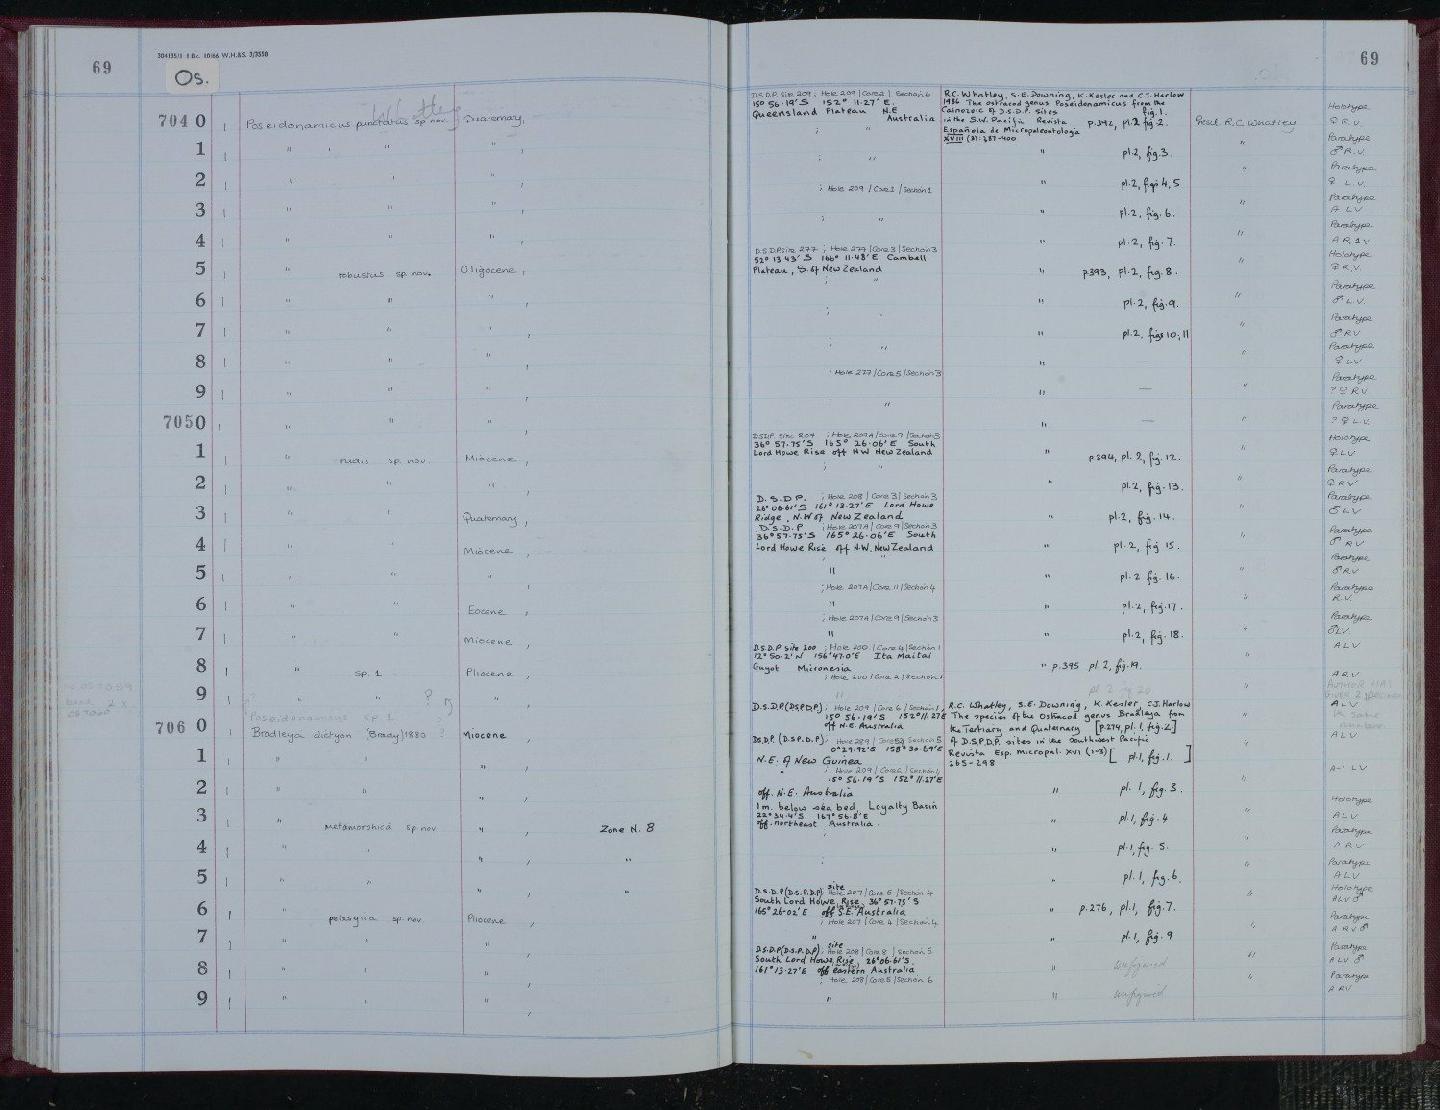 69
304135/1 1 Bc. 10/66 W.H.&S. 3/3558
Os.
7040 1 Poseidonamicus punctatus sp nov. Quaternary,
1 1 " " " " ,
2 1 " " " ,
3 1 " " " ,
4 1 " " " ,
5 1 " robustus sp. nov. Oligocene,
6 1 " " " ,
7 1 " " " ,
8 1 " " " ,
9 1 " " " ,
7050 1 " " " ,
1 1 " nudis sp. nov. Miocene,
2 1 " " " ,
3 1 " " Quaternary,
4 1 " " Miocene,
5 1 " " " ,
6 1 " " Eocene ,
7 1 " " Miocene,
8 1 " sp. 1 Pliocene,
9 1 " " " ?
Poseidonamicus sp. 1 ?
7060 1 Bradleya dictyon (Brady) 1880 Miocene ,
1 1 " " " ,
2 1 " " " ,
3 1 " metamorphica sp nov " , Zone N. 8
4 1 " " " , "
5 1 " " " , "
6 1 " sp. nov. Pliocene ,
7 1 " " " ,
8 1 " " " ,
9 1 " " " ,
69
D.S.D.P. Site 209 ; Hole 209 / Core 2 / Section 6
150 56.19'S 152° 11.27' E.
Queensland Plateau N.E
Australia
R.C. Whatley, S.E. Downing, K. Kesler and C.J. Harlow
1986 The ostracod genus Poseidonamicus from the
Cainozoic of D.S.D.P. sites
in the S.W. Pacific Revista
Española de Micropaleontologia
XVIII (3): 387-400
fig. 1.
p.392, pl.2 fig 2.
Presd R.C. Whatley
Holotype
♀ R.V.
" pl.2, fig.3. " Paratype
♂ R.V.
" pl.2, figs 4,5 " Paratype
♀ L.V.
; Hole 209 / Core 1 / Section 1
" pl.2, fig. 6. " Paratype
A LV
" pl.2, fig. 7. " Paratype
D.S.D.P. Site 277 ; Hole 277 / Core 3 / Section 3
52° 13.43' S 166° 11.48' E Cambell
Plateau, S. of New Zealand
" p393, pl.2, fig. 8. " Holotype
♀ R.V.
" pl.2, fig. 9. " Paratype
♂ L.V.
" pl.2, figs 10, 11 " Paratype
♂ RV
" " Paratype
♀ LV
; Hole 277 / Core 5 / Section 3
" — " Paratype
? ♀ R.V
" — " Paratype
? ♀ L.V.
; Hole 207A / Core 9 / Section 3
36° 57.75'S 165° 26.06'E South
Lord Howe Rise off NW New Zealand
" p.394, pl. 2, fig. 12. " Holotype
♀ LV
pl.2, fig. 13. " Paratype
♀ RV
D. S. D. P. ; Hole 208 / Core 3 / Section 3
26° 06.61'S 161° 13.27' E Lord Howe
Ridge, N.W of New Zealand
" pl.2, fig. 14. " Paratype
♂ LV
D. S. D. P ; Hole 207A / Core 9 / Section 3
36° 57.75'S 165° 26.06'E South
Lord Howe Rise off N.W. New Zealand
" pl.2, fig 15. " Paratype
♂ RV
" " pl.2 fig. 16. " Paratype
♂ RV
; Hole 207A / Core 11 / Section 4
" " pl.2, fig. 17. " Paratype
R.V.
; Hole 207A / Core 9 / Section 3
" " pl.2, fig. 18. " Paratype
♂ LV.
D.S.D.P Site 200 ; Hole 200 / Core 4 / Section 1
12° 50.2' N 156° 47.0'E Ita Maitai
Guyot Micronesia
" p.395 pl. 2, fig. 19. " A LV
; Hole 200 / Core 2 / Section 1
" pl 2 fig 20 " A RV
AUTHOR HAS
D.S.D.P.(DSPDP.) ; Hole 209 / Core 6 / Section 1,
150 56.19'S 152° 11.27E
off N.E. Australia
R.C. Whatley, S.E. Downing, K. Kesler, C.J. Harlow
The species of the Ostracod genus Bradleya from
the Tertiary and Quaternary [p.274, pl. 1, fig. 2]
of D.S.P.D.P. sites in the Southwest Pacific
Revista Esp. micropal. XVI (1-3) [ pl. 1, fig. 1. ]
265-298
A LV
D.S.D.P. (D.S.P.D.P.) ; Hole 289 / Section 5
0° 29.92'S 158° 30.69'E
N.E. of New Guinea
A LV
; Hole 209 / Core 6 / Section 1,
150 56.19'S 152° 11.27'E
off. N.E. Australia
" pl. 1, fig. 3. " A-1 LV
1m. below sea bed, Loyalty Basin
22° 34.4'S 167° 56.8'E
off. northeast Australia.
" pl. 1, fig. 4 " Holotype
A LV
" pl. 1, fig. 5. " Paratype
A RV
" pl. 1, fig. 6. " Paratype
A LV
D.S.D.P.(D.S.P.D.P) site
Hole 207 / Core 6 / Section 4
South Lord Howe Rise, 36° 57.75' S
165° 26.02' E off S.E. Australia
" p.276, pl. 1, fig. 7. " Holotype
A LV ♂
; Hole 207 / Core 4 / Section 4
" " pl. 1, fig. 9 " Paratype
A RV ♂
D.S.D.P(D.S.P.D.P) ; site
Hole 208 / Core 8 / Section 5
South Lord Howe Rise, 26° 06.61'S
161° 13.27'E off eastern Australia
" unfigured " Paratype
A LV ♂
; Hole 208 / Core 5 / Section 6
" " unfigured " Paratype
A RV